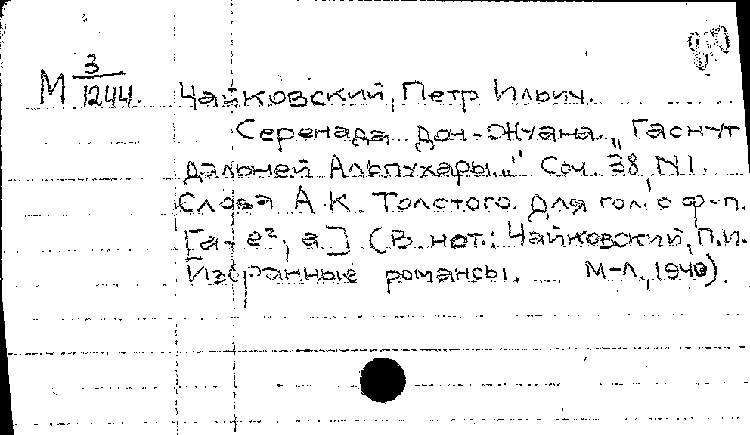 М 3/1244. Чайковский, Петр Ильич.
Серенада Дон-Жуана. „Гаснут
дальней Альпухары..." Соч. 38, N1.
Слова А.К. Толстого. Для гол. с ф-п.
[а - e², a] (В нот.: Чайковский, П.И.
Избранные романсы. М-Л, 1940).